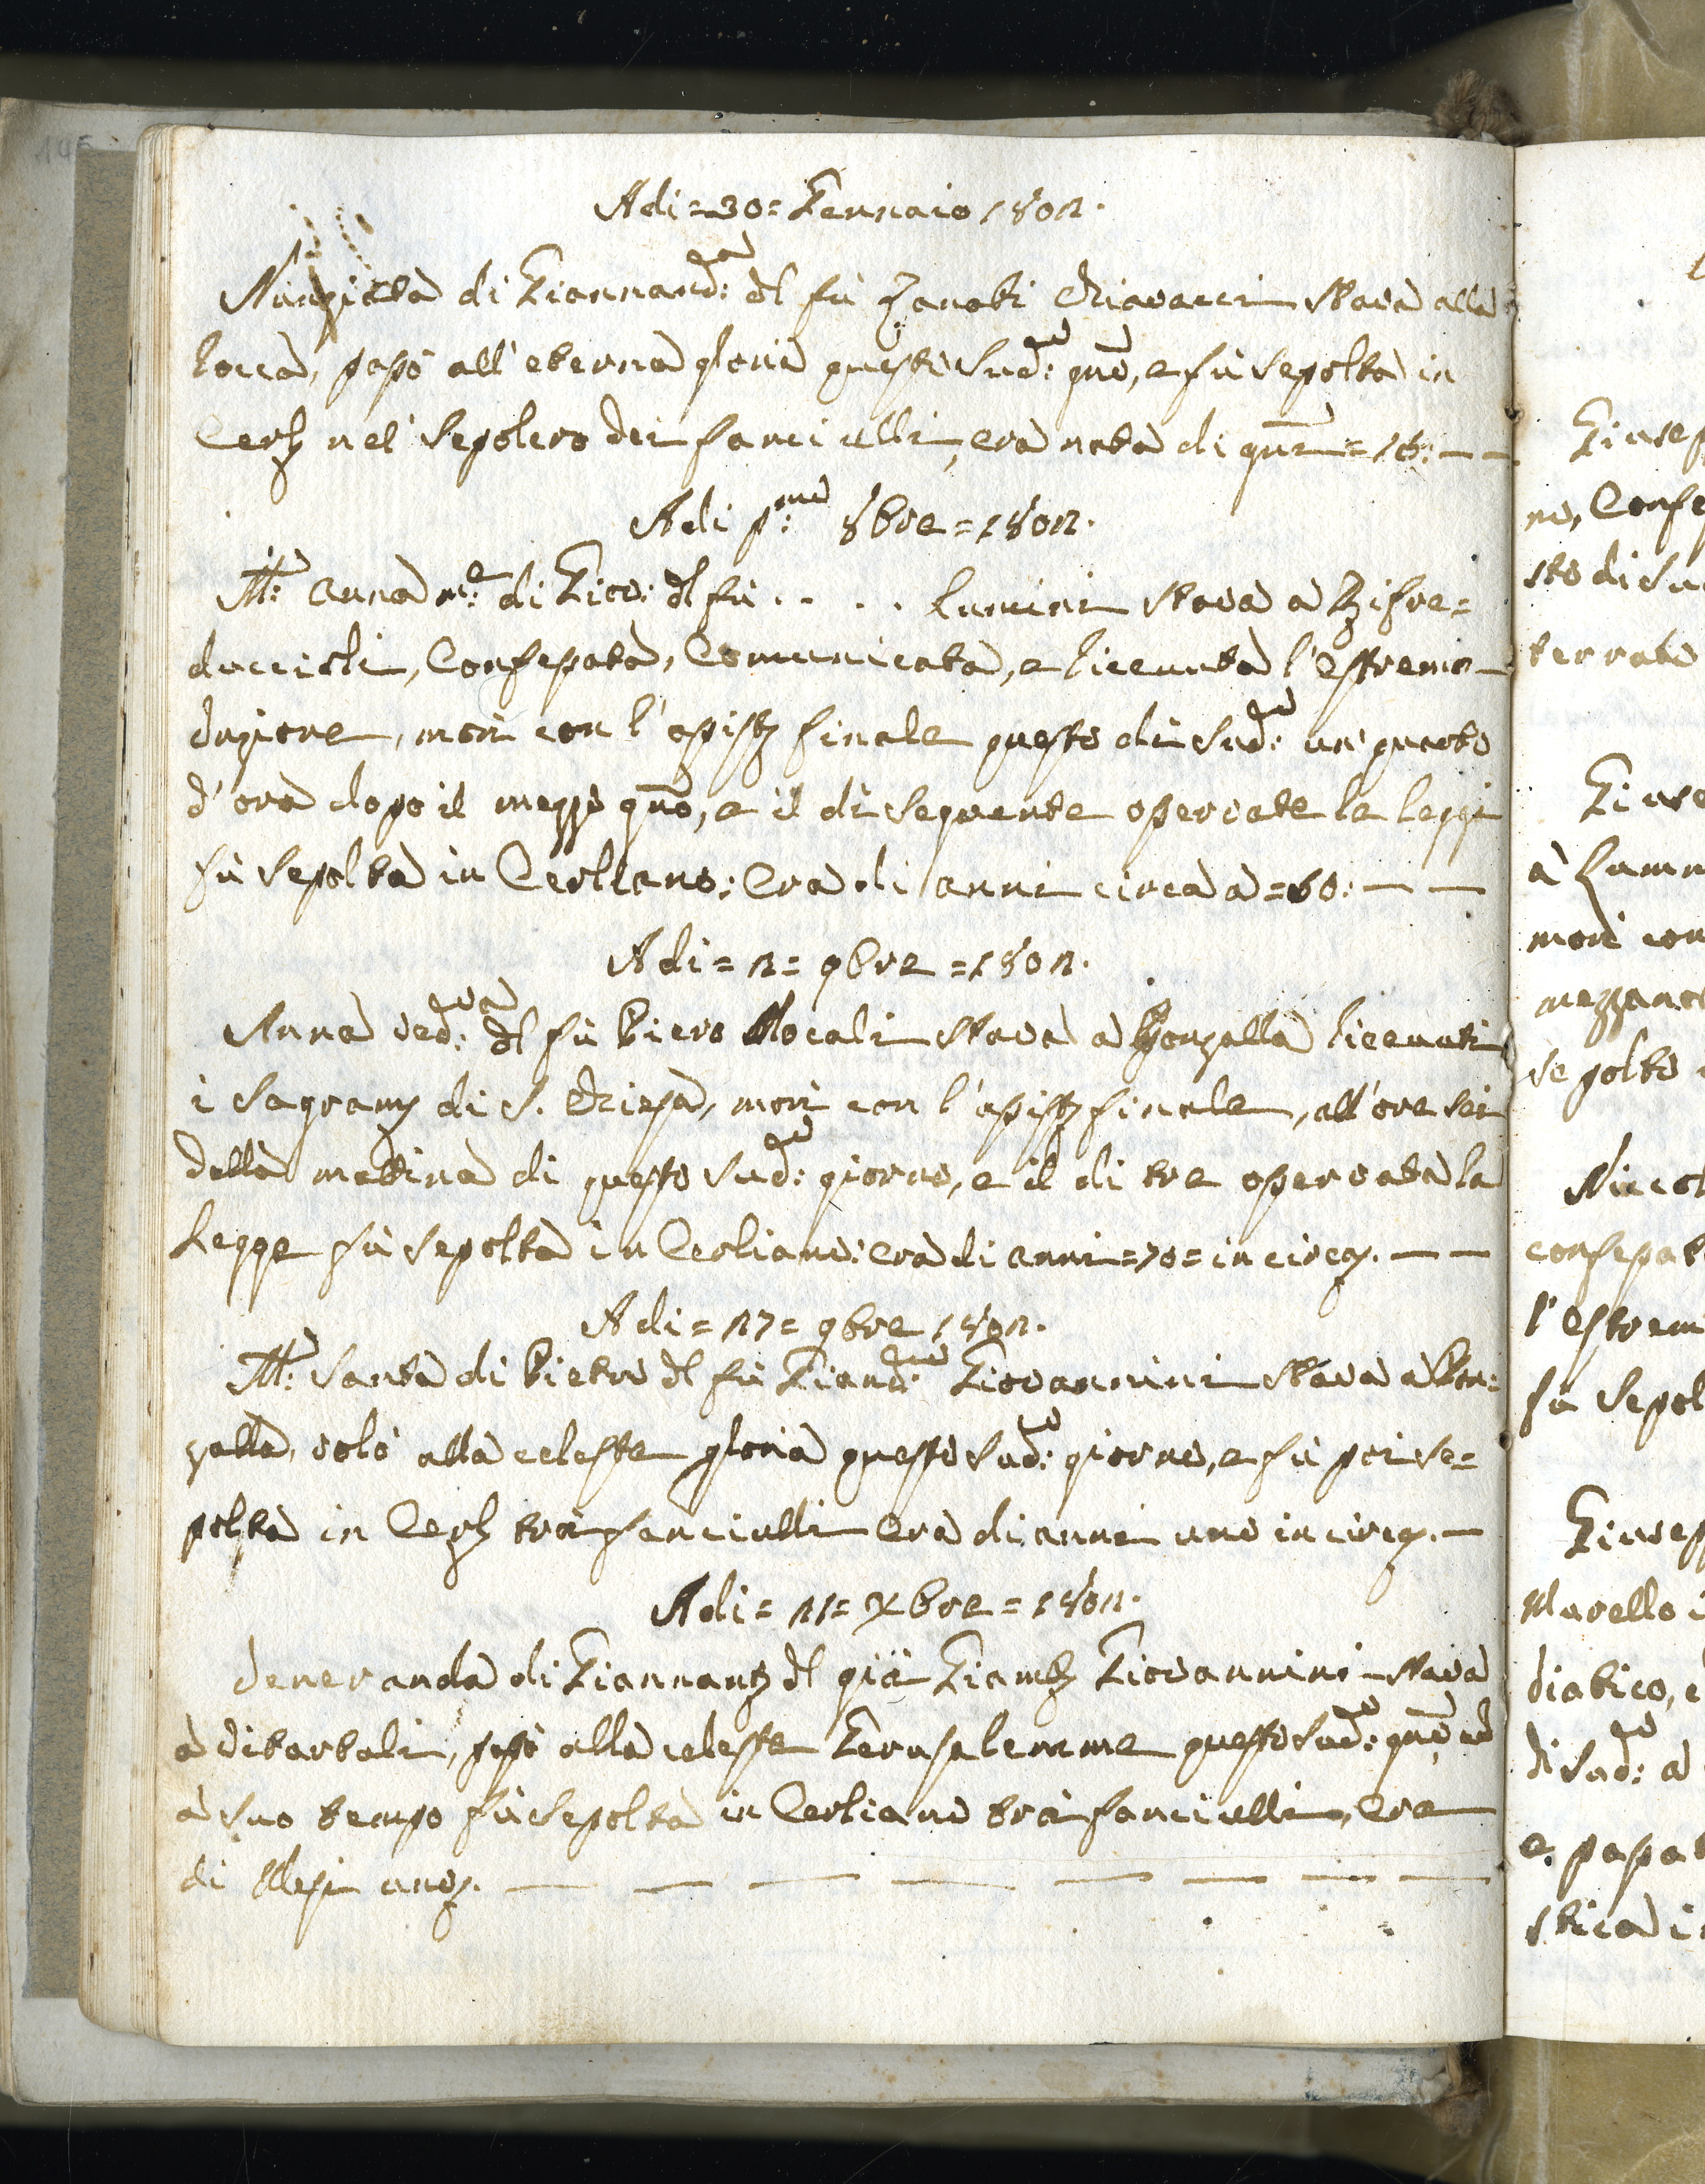 Adi = 30 = Gennaio 1802.
Nunziata di Giannand:ᵃ dl fù Zanobi Chiavacci stava alla
Rocca, passò all'eterna gloria questo Sud:ᵒ gnō, e fù sepolta in
Cerl nel Sepolcro dei fanciulli, era nata di gnī = 16: — —
Adi p:ᵐᵒ 8bre = 1802.
M:ᵃ Anna mᵉ: di Gio: dl fù . . . . Lumini stava a
duccioli, Confessata, Comunicata, e ricevuta l'estrema
Unzione, morì con l'assist finale questo dì sud:ᵒ un quarto
d'ora dopo il mezzo gnō, e il dì seguente osservate le leggi
fù sepolta in Cerliano: Era di anni circa a = 60: — —
Adi = 2 = 9bre = 1802.
Anna ved:ᵛᵃ dl fù Piero Mocali stava a Ronzalla ricevuti
i Sagram di S. Chiesa, morì con l'assist finale, all'ore sei
della mattina di questo sud:ᵒ giorno, e il dì tre osservata la
Legge fù sepolta in Cerliano: era di anni = 70 = in circa. — —
Adi = 27 = 9bre 1802.
M:ᵃ Santa di Pietro dl fù Giand:ᵒ Giovannini stava a Ron:
zalla, volò alla celeste gloria questo sud:ᵒ giorno, e fù poi se=
polta in Cerl trà fanciulli era di anni uno in circa. —
Adi = 21 = Xbre = 1802.
Veneranda di Giannant dl già Giamb Giovannini stava
a Vitartoli, passò alla celeste Gerusalemme questo sud:ᵒ gnō ed
à suo tempo fù sepolta in Cerliano trà fanciulli, era
di Mesi
Giusep
no, Confe
sto di Su
terrato
Giuse
à Lumi
morì con
mezzano
sepolto
Nicol
confessat
l'estrem
fù Sepol
Giusep
Marello
diatico, e
dì sud:ᵒ a
e. passat
stica i